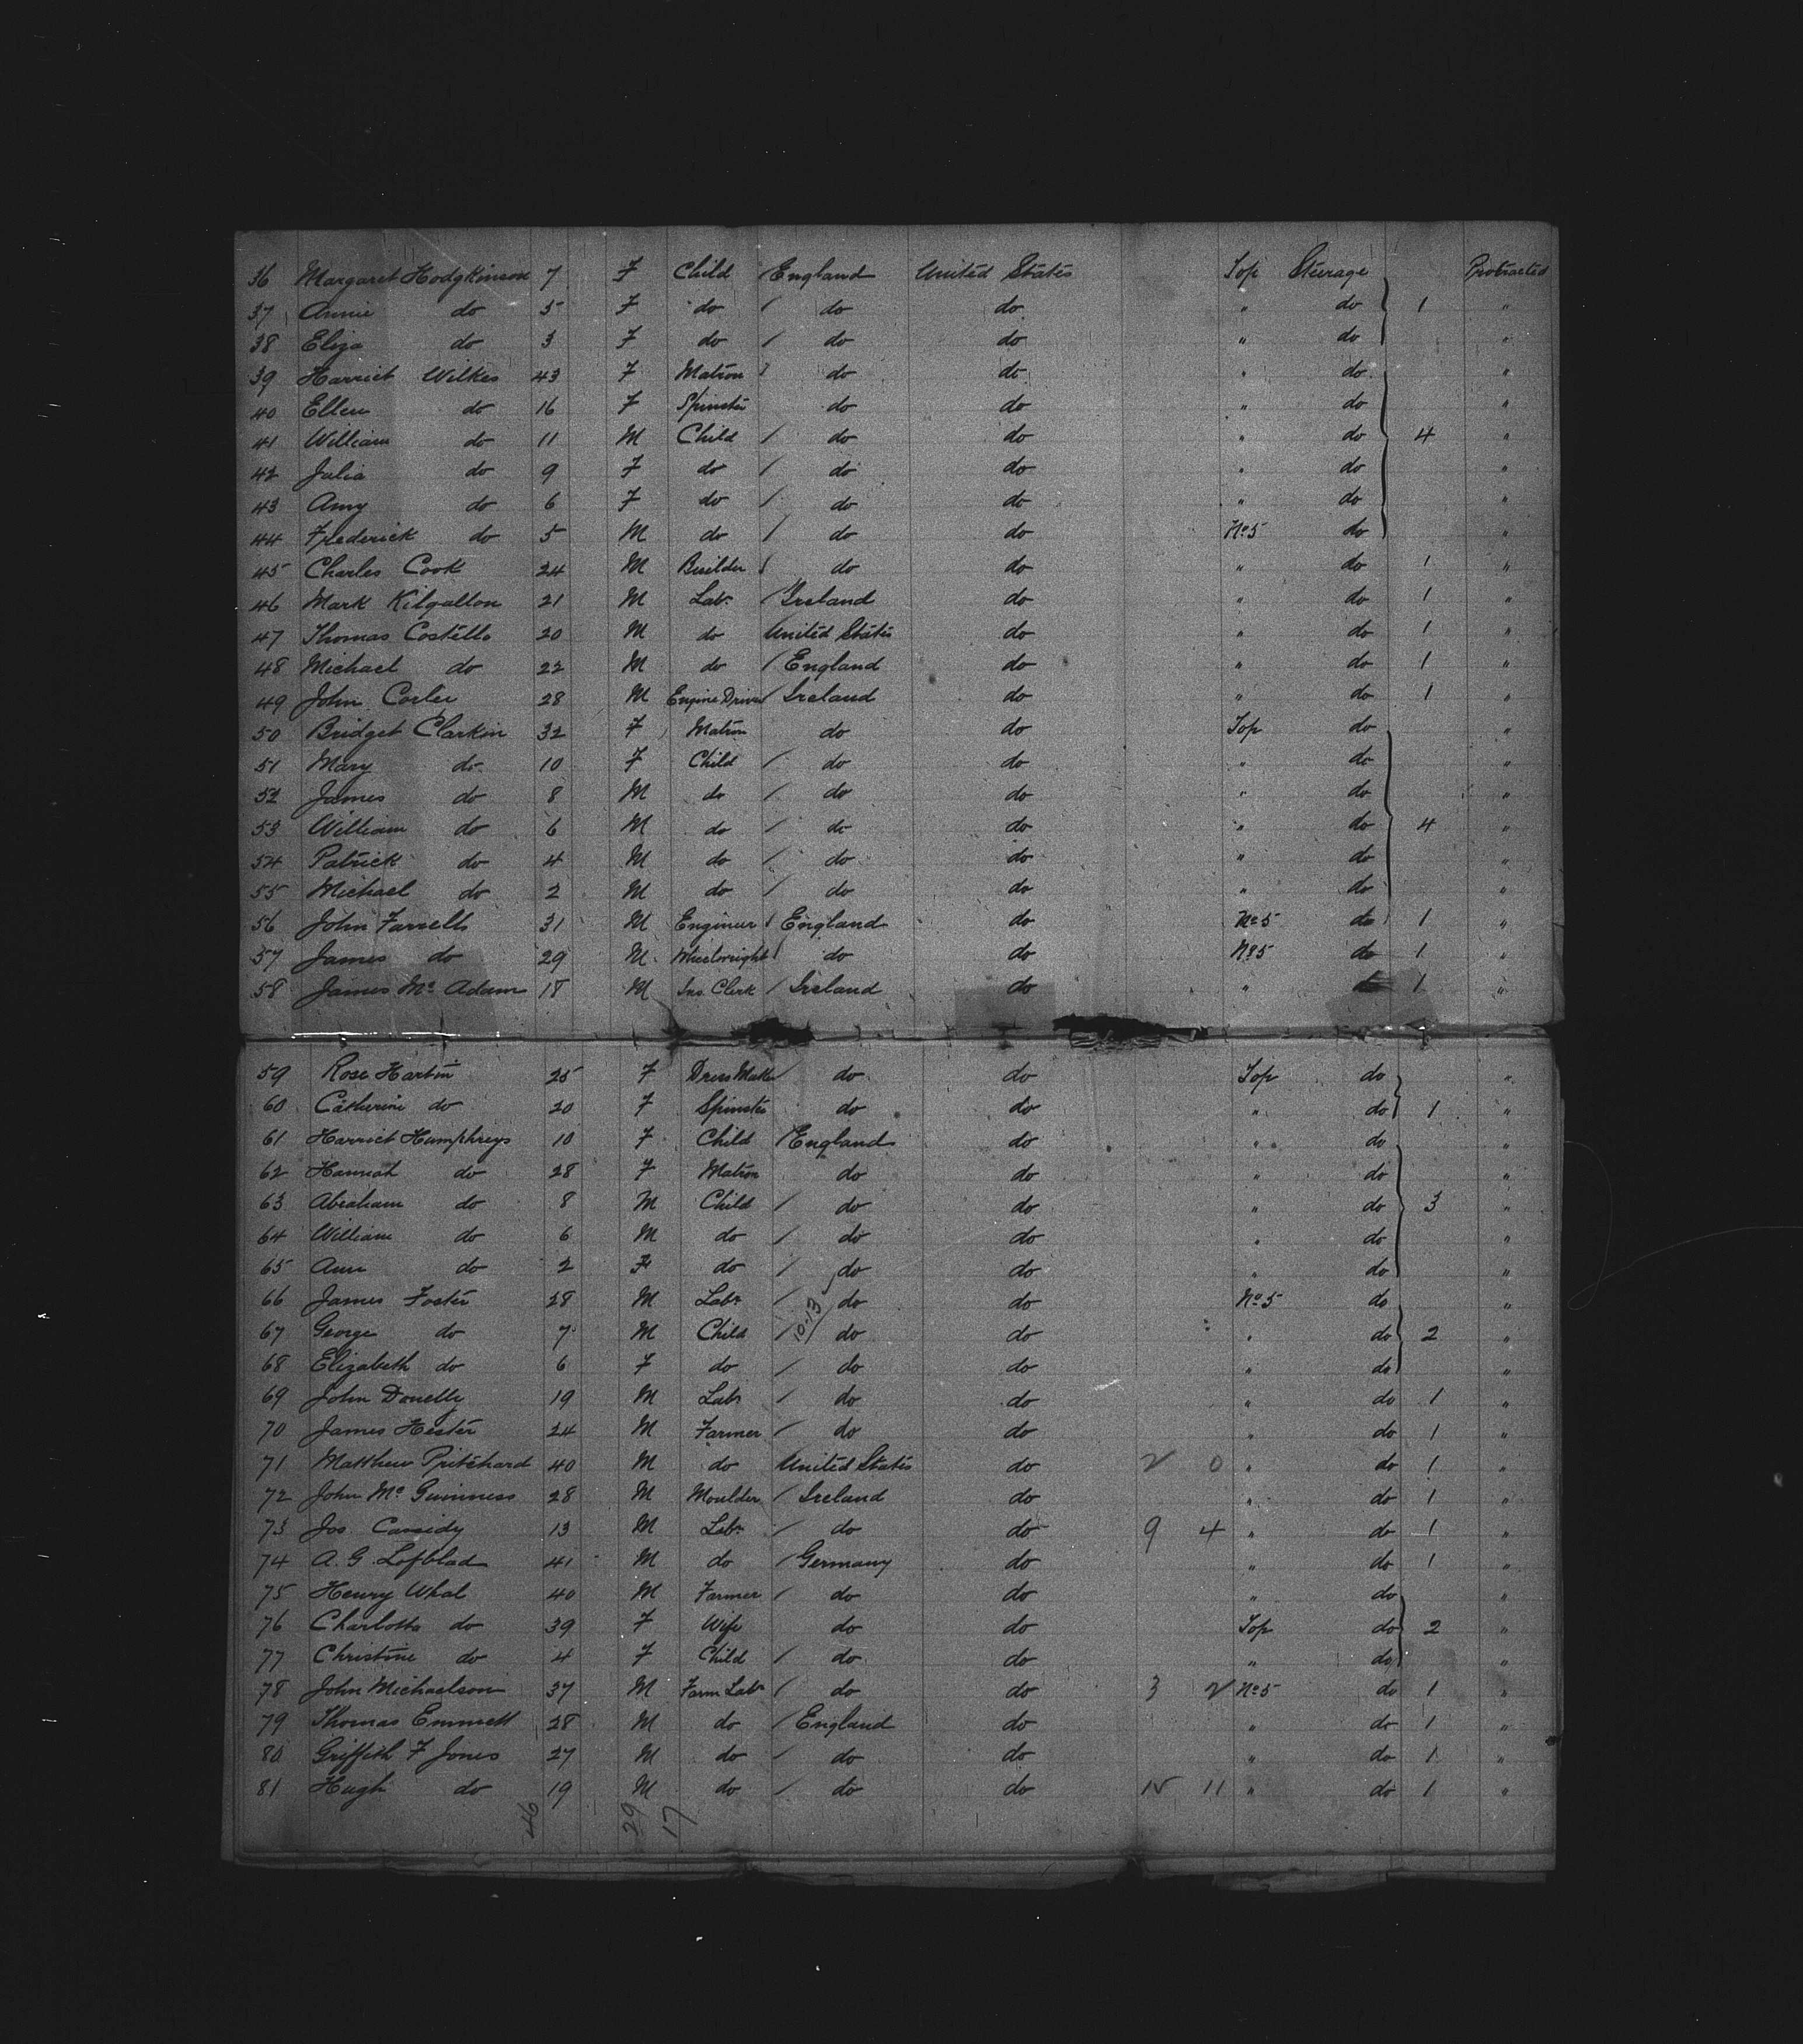 36 Margaret Hodgkinson 7 F Child England United States Top Steerage Protracted
37 Annie do 5 F do / do do " do 1 "
38 Eliza do 3 F do / do do " do "
39 Harriet Wilkes 43 F Matron do do " do "
40 Ellen do 16 F Spinster do do " do "
41 William do 11 M Child / do do " do 4 "
42 Julia do 9 F do / do do " do "
43 Amy do 6 F do / do do " do "
44 Frederick do 5 M do / do do No 5 do "
45 Charles Cook 24 M Builder do do " do 1 "
46 Mark Kilgallon 21 M Labr / Ireland do " do 1 "
47 Thomas Costello 20 M do United States do " do 1 "
48 Michael do 22 M do / England do " do 1 "
49 John 28 M Engine Driver / Ireland do " do 1 "
50 Bridget Clarkin 32 F Matron do do Top do "
51 Mary do 10 F Child / do do " do "
52 James do 8 M do / do do " do "
53 William do 6 M do / do do " do 4 "
54 Patrick do 4 M do / do do " do "
55 Michael do 2 M do / do do " do "
56 John Farrell 31 M Engineer / England do No 5 do 1 "
57 James do 29 M Wheelwright / do do No 5 do 1 "
58 James Mc Adam 18 M Ins. Clerk / Ireland do " do 1 "
59 Rose Hartin 25 F Dress Maker / do do Top do "
60 Catherine do 20 F Spinster do do " do 1 "
61 Harriet Humphreys 10 F Child / England do " do "
62 Hannah do 28 F Matron do do " do "
63 Abraham do 8 M Child / do do " do 3 "
64 William do 6 M do / do do " do "
65 Ann do 2 F do / do do " do "
66 James Foster 28 M Labr / do do No 5 do "
67 George do 7 M Child / 10.13 do do " do 2 "
68 Elizabeth do 6 F do / do do " do "
69 John Donelly 19 M Labr / do do " do 1 "
70 James Hester 24 M Farmer / do do " do 1 "
71 Matthew Pritchard 40 M do United States do 2 0 " do 1 "
72 John Mc Guinness 28 M Moulder / Ireland do " do 1 "
73 Jos. Cassidy 13 M Labr / do do 9 4 " do 1 "
74 A. G. Lofblad 41 M do / Germany do " do 1 "
75 Henry Whal 40 M Farmer / do do " do "
76 Charlotta do 39 F Wife do do Top do 2 "
77 Christine do 4 F Child / do do " do "
78 John Michaelson 37 M Farm Labr / do do 3 2 No 5 do 1 "
79 Thomas Emmett 28 M do / England do " do 1 "
80 Griffith F Jones 27 M do / do do " do 1 "
81 Hugh do 19 M do / do do 15 11 " do 1 "
46 29 17